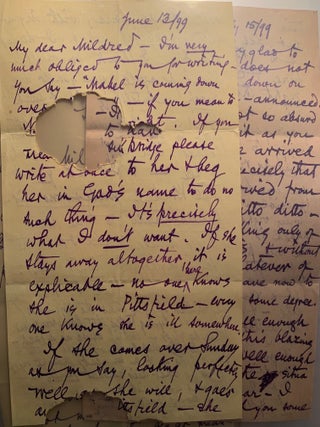 June 13/99
My dear Mildred — I'm very
much obliged to you for writing —
You say — "Mabel is coming down
over — I — if you mean to
N ht. If you
to
near Mil Bridge please
write at once to her & beg
her in God's name to do no
such thing — It's precisely
what I don't want. If she
stays away altogether, it is
explicable — no one here knows
she is in Pittsfield — every
one knows she is ill somewhere
If she comes over Sunday
as you say, looking perfectly
well as she will, & goes
Pittsfield — she
15/99
glad to
does not
down on
announced
so absurd
it as you
arrived
precisely that
ived from
itto ditto —
ing only of
& without
hatever of
are now to
some degree.
ll enough
his blazing
well enough
the situa
— I
you some